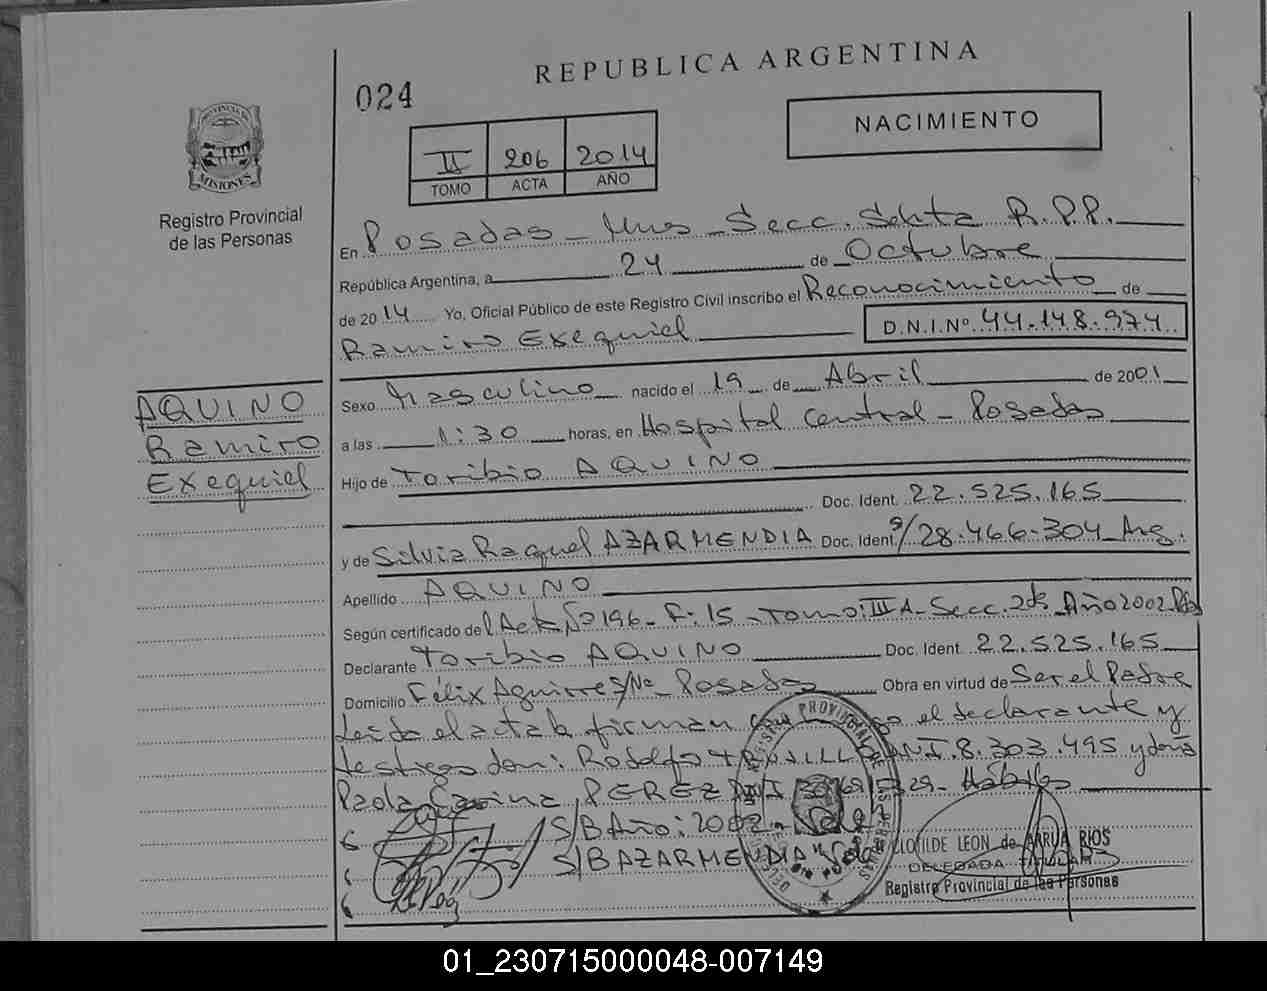 REPUBLICA ARGENTINA
024
NACIMIENTO
II 206 2014
TOMO ACTA AÑO
PROVINCIA DE
MISIONES
Registro Provincial
de las Personas
En Posadas - Mnes - Secc. Sexta R.P.P.
República Argentina, a 24 de Octubre
de 2014 Yo, Oficial Público de este Registro Civil inscribo el Reconocimiento de
Ramiro Exequiel D.N.I.Nº 44.148.974
AQUINO
Ramiro
Exequiel
Sexo Masculino nacido el 19 de Abril de 2001
a las 1:30 horas, en Hospital Central - Posadas
Hijo de Toribio AQUINO
Doc. Ident. 22.525.165
y de Silvia Raquel AZARMENDIA Doc. Ident. 28.466.304 Arg.
Apellido AQUINO
Según certificado del Acta Nº 196 - F: 15 - Tomo: III A - Secc. 2da Año 2002
Declarante Toribio AQUINO Doc. Ident. 22.525.165
Domicilio Félix Aguirre S/Nº Posadas Obra en virtud de Ser el Padre
Leida el acta la firman el declarante y
testigos don: Rodolfo 8.303.495 y doña
Paola Carina PEREZ Hábiles
S/B Año: 2002 - Vale
S/B AZARMENDIA Vale
CLOTILDE LEON de ARRUA RIOS
DELEGADA TITULAR
Registro Provincial de las Personas
01_230715000048-007149